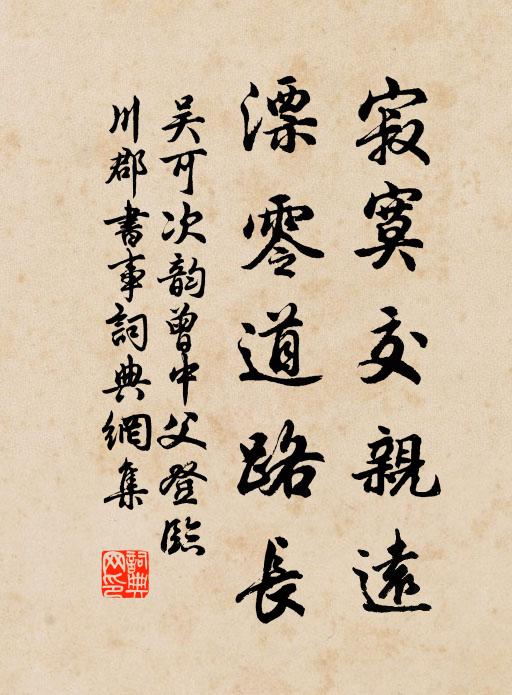 寂寞交親遠
漂零道路長
吳可次韵曾中父登臨
川郡書事詞典網集
詞典网印